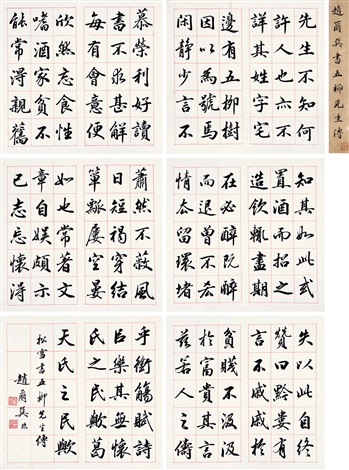 趙爾巽書五柳先生傳
先生不知何
許人也亦不
詳其姓字宅
邊有五柳樹
因以為號焉
閑静少言不
慕榮利好讀
書不求甚解
每有會意便
欣然忘食性
嗜酒家貧不
能常得親舊
知其如此或
置酒而招之
造飲輒盡期
在必醉既醉
而退曾不吝
情去留環堵
蕭然不蔽風
日短褐穿結
簞瓢屢空晏
如也常著文
章自娛頗示
己志忘懷得
失以此自終
贊曰黔婁有
言不戚戚於
貧賤不汲汲
於富貴其言
茲若人之儔
乎銜觴賦詩
以樂其無懷
氏之民歟葛
天氏之民歟
松雪書五柳先生傳
趙爾巽臨